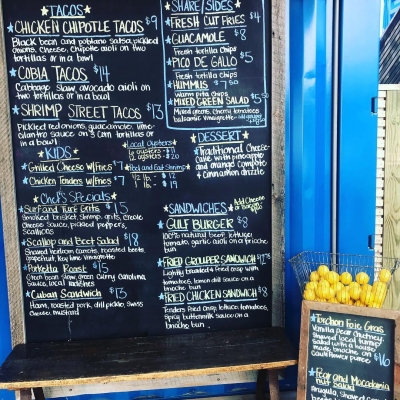 TACOS
CHICKEN CHIPOTLE TACOS $9
Black bean and poblano salsa, pickled
onions, cheese, chipotle aioli on two
tortillas or in a bowl
COBIA TACOS $14
Cabbage slaw, avocado aioli on
two tortillas or in a bowl
SHRIMP STREET TACOS $13
Pickled red onions, guacamole, lime-
cilantro sauce on 3 corn tortillas or
in a bowl
KIDS
Grilled Cheese w/Fries $7
Chicken Tenders w/Fries $7
Local Oysters
Peel and Eat Shrimp
Chef's Specials
Surf and Turf Grits $15
Smoked brisket, shrimp, grits, creole
sauce, pickled peppers,
scallions
Scallop and Beet Salad $18
Shaved heirloom carrots, roasted beets,
grapefruit, key lime vinaigrette
Porketta Roast $15
Cuban Sandwich $13
Ham, roasted pork, dill pickle, Swiss
cheese, mustard
SHARE/SIDES
FRESH CUT FRIES $4
GUACAMOLE $8
Fresh tortilla chips
PICO DE GALLO $5
Fresh tortilla chips
HUMMUS $7.50
warm pita chips
MIXED GREEN SALAD $5.50
Mixed greens, cherry tomatoes
balsamic vinaigrette
DESSERT
Traditional Cheese-
cake with pineapple
and orange compote
+ cinnamon drizzle
SANDWICHES
Add Cheese
GULF BURGER $8
100% natural beef, lettuce,
tomato, garlic aioli on a brioche
bun
FRIED GROUPER SANDWICH
Lightly breaded & fried crisp with
tomatoes, lemon dill sauce on a
brioche bun
FRIED CHICKEN SANDWICH $8
Tenders fried crisp, lettuce, tomatoes,
spicy buttermilk sauce on a
brioche bun
Torchon Foie Gras
Vanilla pear chutney,
shaved local turnip
salad with a house
made brioche on
cauliflower puree $16
Pear and Macadamia
nut Salad
Arugula, shaved